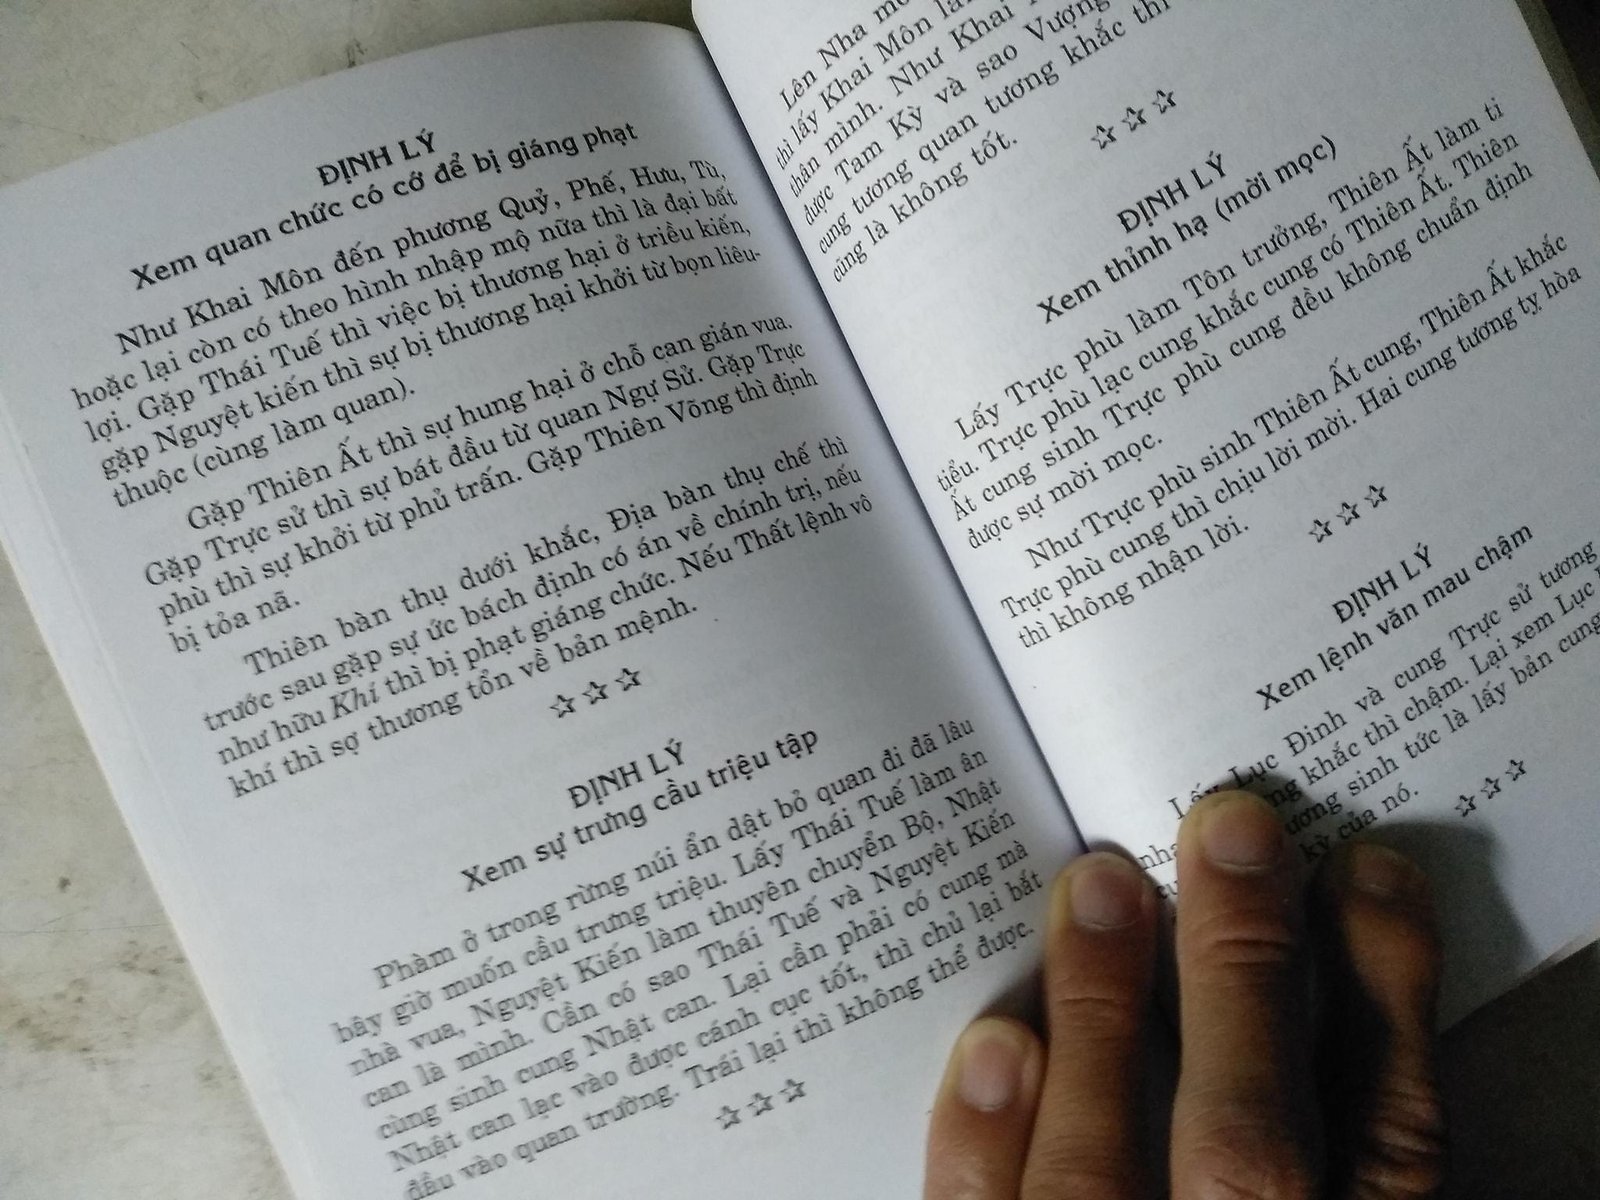 ĐỊNH LÝ
Xem quan chức có cớ để bị giáng phạt
Như Khai Môn đến phương Quỷ, Phế, Hưu, Tù,
hoặc lại còn có theo hình nhập mộ nữa thì là đại bất
lợi. Gặp Thái Tuế thì việc bị thương hại ở triều kiến,
gặp Nguyệt kiến thì sự bị thương hại khởi từ bọn liêu-
thuộc (cùng làm quan).
Gặp Thiên Ất thì sự hung hại ở chỗ can gián vua.
Gặp Trực sử thì sự bát đầu từ quan Ngự Sử. Gặp Trực
phù thì sự khởi từ phủ trấn. Gặp Thiên Võng thì định
bị tỏa nã.
Thiên bàn thụ dưới khắc, Địa bàn thụ chế thì
trước sau gặp sự ức bách định có án về chính trị, nếu
như hữu Khí thì bị phạt giáng chức. Nếu Thất lệnh vô
khí thì sợ thương tổn về bản mệnh.
☆☆☆
ĐỊNH LÝ
Xem sự trưng cầu triệu tập
Phàm ở trong rừng núi ẩn dật bỏ quan đi đã lâu
bây giờ muốn cầu trưng triệu. Lấy Thái Tuế làm ân
nhà vua, Nguyệt Kiến làm thuyên chuyển Bộ, Nhật
can là mình. Cần có sao Thái Tuế và Nguyệt Kiến
cùng sinh cung Nhật can. Lại cần phải có cung mà
Nhật can lạc vào được cánh cục tốt, thì chủ lại bắt
đầu vào quan trường. Trái lại thì không thể được.
☆☆☆
Lên Nha
thì lấy Khai Môn làm
thân mình. Như Khai
được Tam Kỳ và sao Vượng
cung tương quan tương khắc thì
cũng là không tốt.
☆☆☆
ĐỊNH LÝ
Xem thỉnh hạ (mời mọc)
Lấy Trực phù làm Tôn trưởng, Thiên Ất làm ti
tiểu. Trực phù lạc cung khắc cung có Thiên Ất. Thiên
Ất cung sinh Trực phù cung đều không chuẩn định
được sự mời mọc.
Như Trực phù sinh Thiên Ất cung, Thiên Ất khắc
Trực phù cung thì chịu lời mời. Hai cung tương tỵ hòa
thì không nhận lời.
☆☆☆
ĐỊNH LÝ
Xem lệnh văn mau chậm
Lấy Lục Đinh và cung Trực sử tương
khắc thì chậm. Lại xem Lục
sinh tức là lấy bản cung
kỳ của nó.
☆☆☆